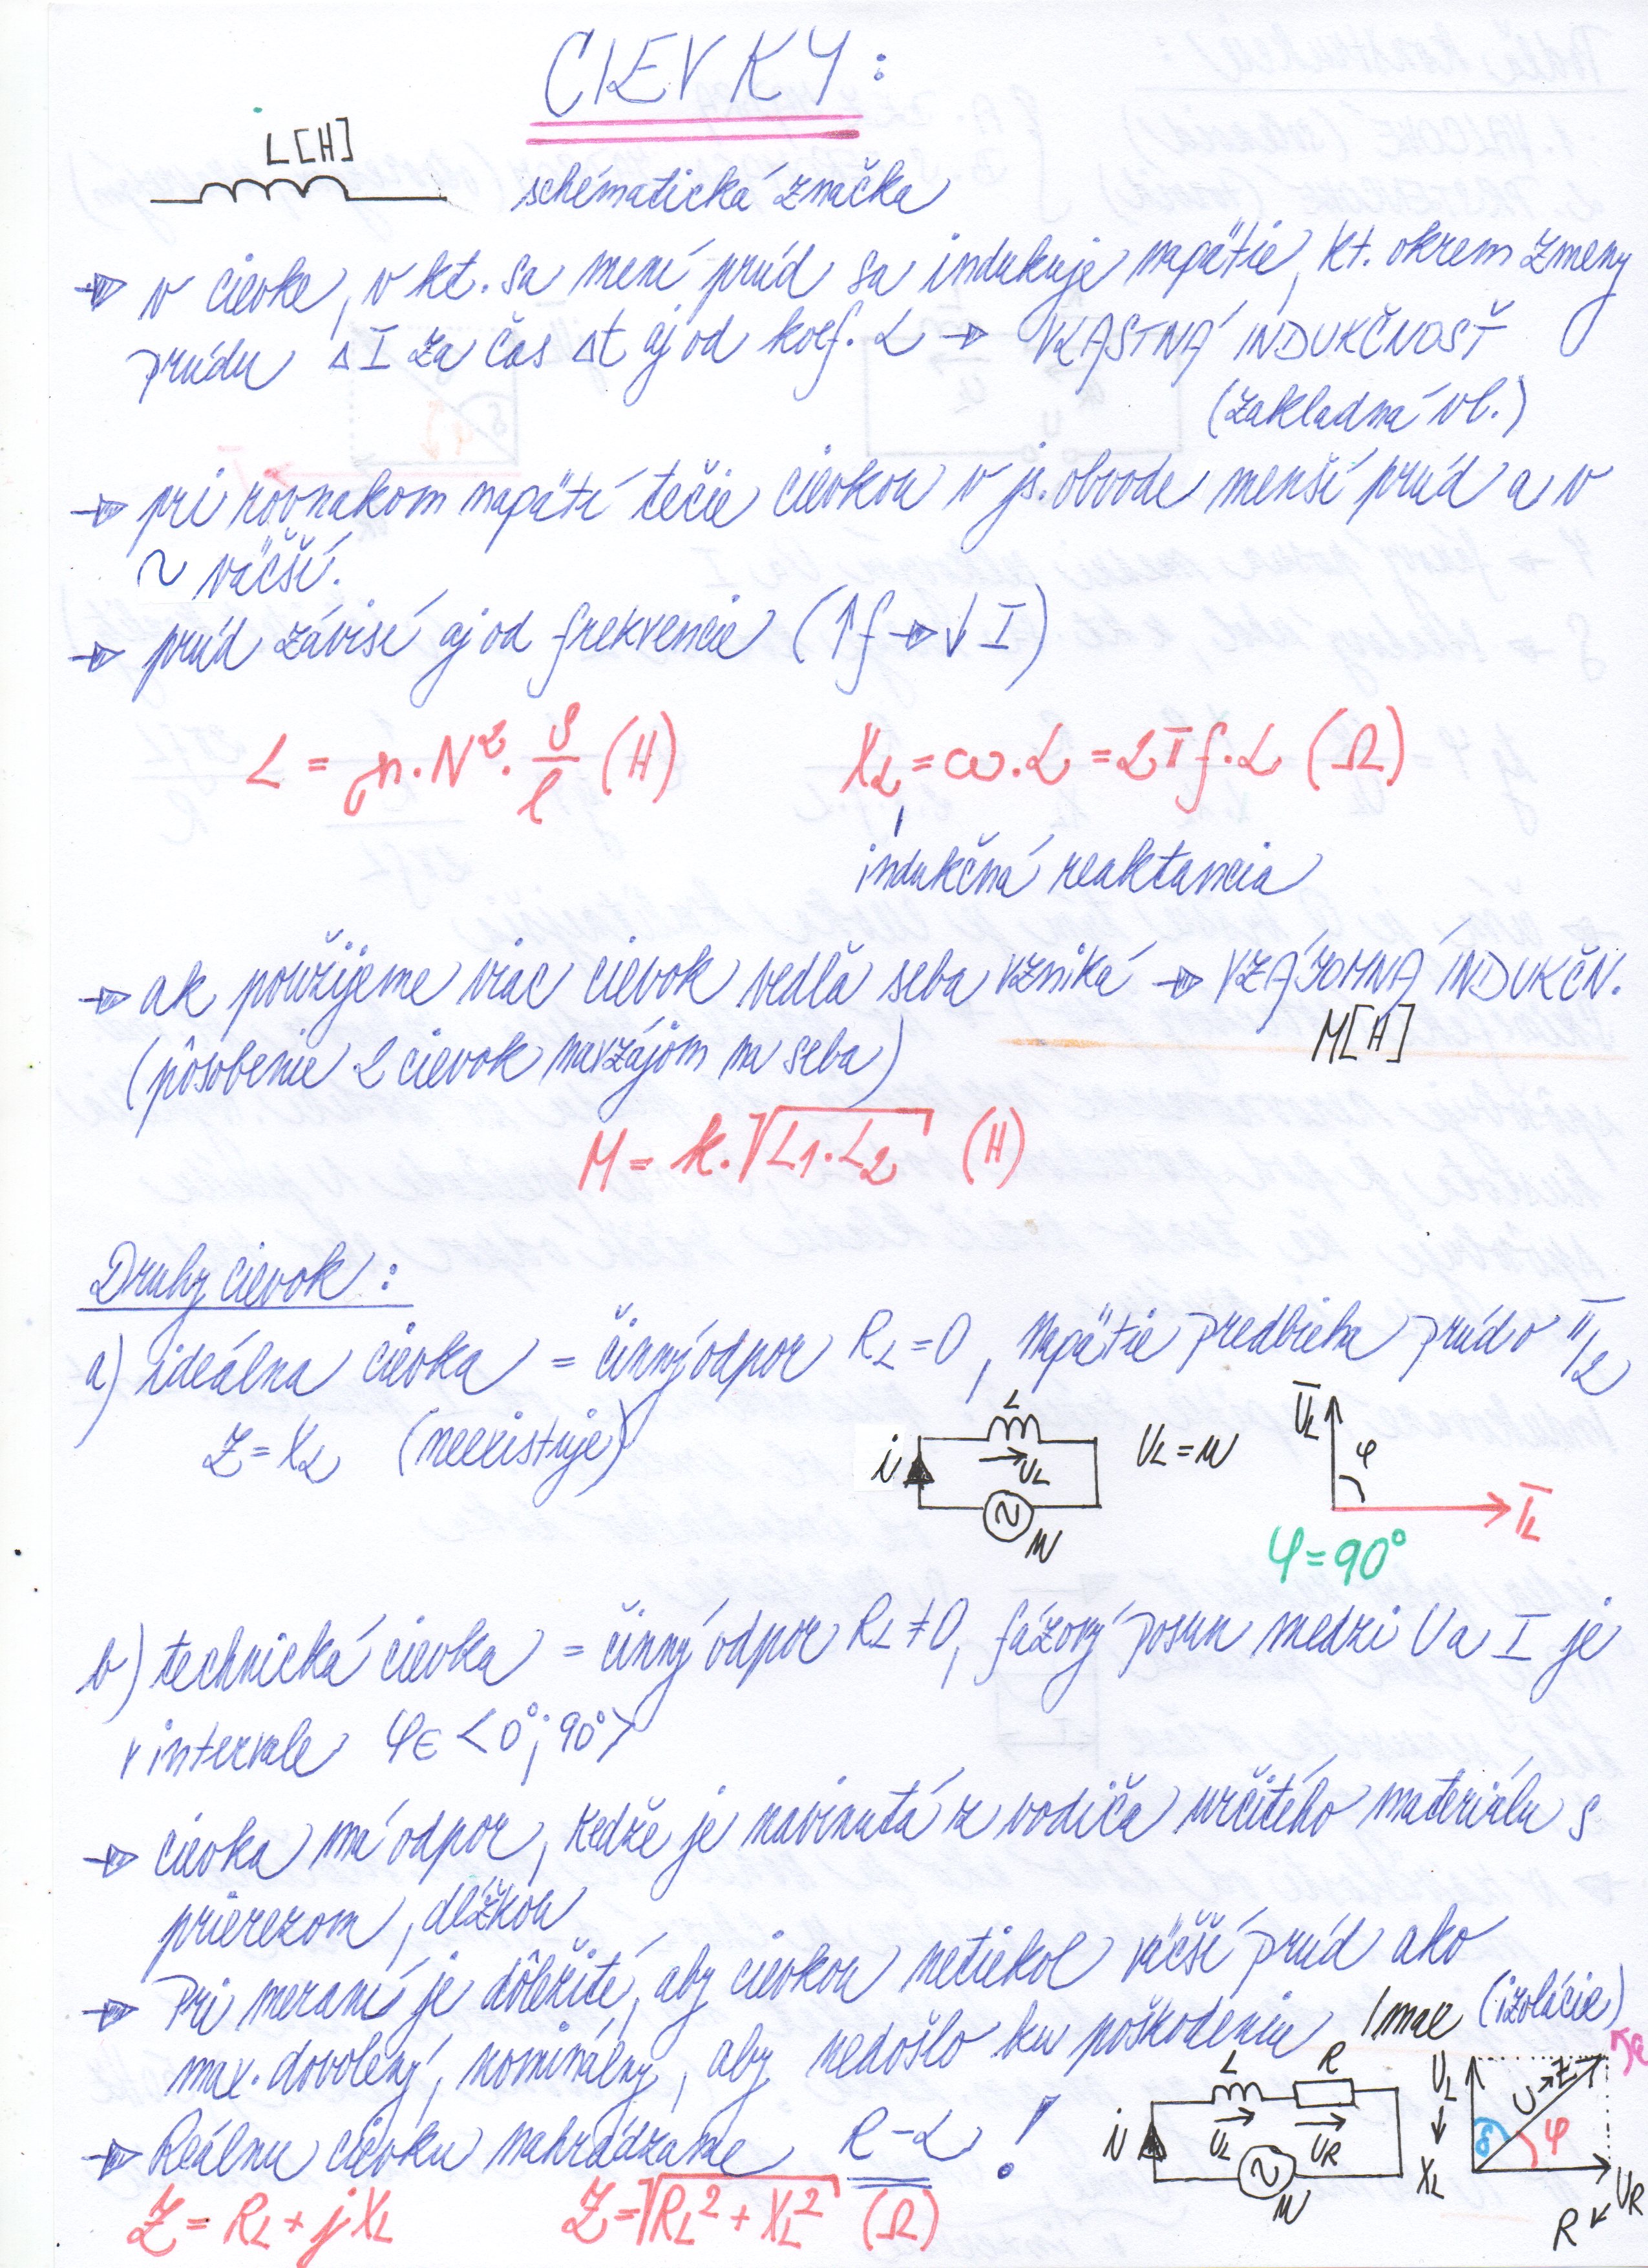 CIEVKY:
L[H]
schématická značka
v cievke, v kt. sa mení prúd sa indukuje napätie, kt. okrem zmeny
prúdu ΔI za čas Δt aj od koef. L → VLASTNÁ INDUKČNOSŤ
(zakladná vl.)
pri rovnakom napätí tečie cievkou v js. obvode menší prúd a v
~ väčší.
prúd závisí aj od frekvencie (↑f → ↓I)
L = μ.N².S/l (H)
XL = ω.L = 2πf.L (Ω)
indukčná reaktancia
ak použijeme viac cievok vedľa seba vzniká → VZÁJOMNÁ INDUKČN.
M[H]
(pôsobenie 2 cievok navzájom na seba)
M = k.√L1.L2 (H)
Druhy cievok:
a) ideálna cievka = činný odpor RL=0, napätie predbieha prúd o π/2
Z = XL (neexistuje)
L
i
UL
u
UL = u
UL
φ
IL
φ=90°
b) technická cievka = činný odpor RL≠0, fázový posun medzi U a I je
v intervale φ∈<0°;90°>
cievka má odpor, kedže je navinutá z vodiča určitého materiálu s
prierezom, dĺžkou
Pri meraní je dôležité, aby cievkou netiekol väčší prúd ako
max. dovolený, nominálny, aby nedošlo ku poškodeniu Imax (izolácie)
Reálnu cievku nahrádzame R-L !
L
R
i
UL
UR
u
UL
XL
U→Z
δ
φ
UR
R
Z = RL + jXL
Z = √RL² + XL² (Ω)